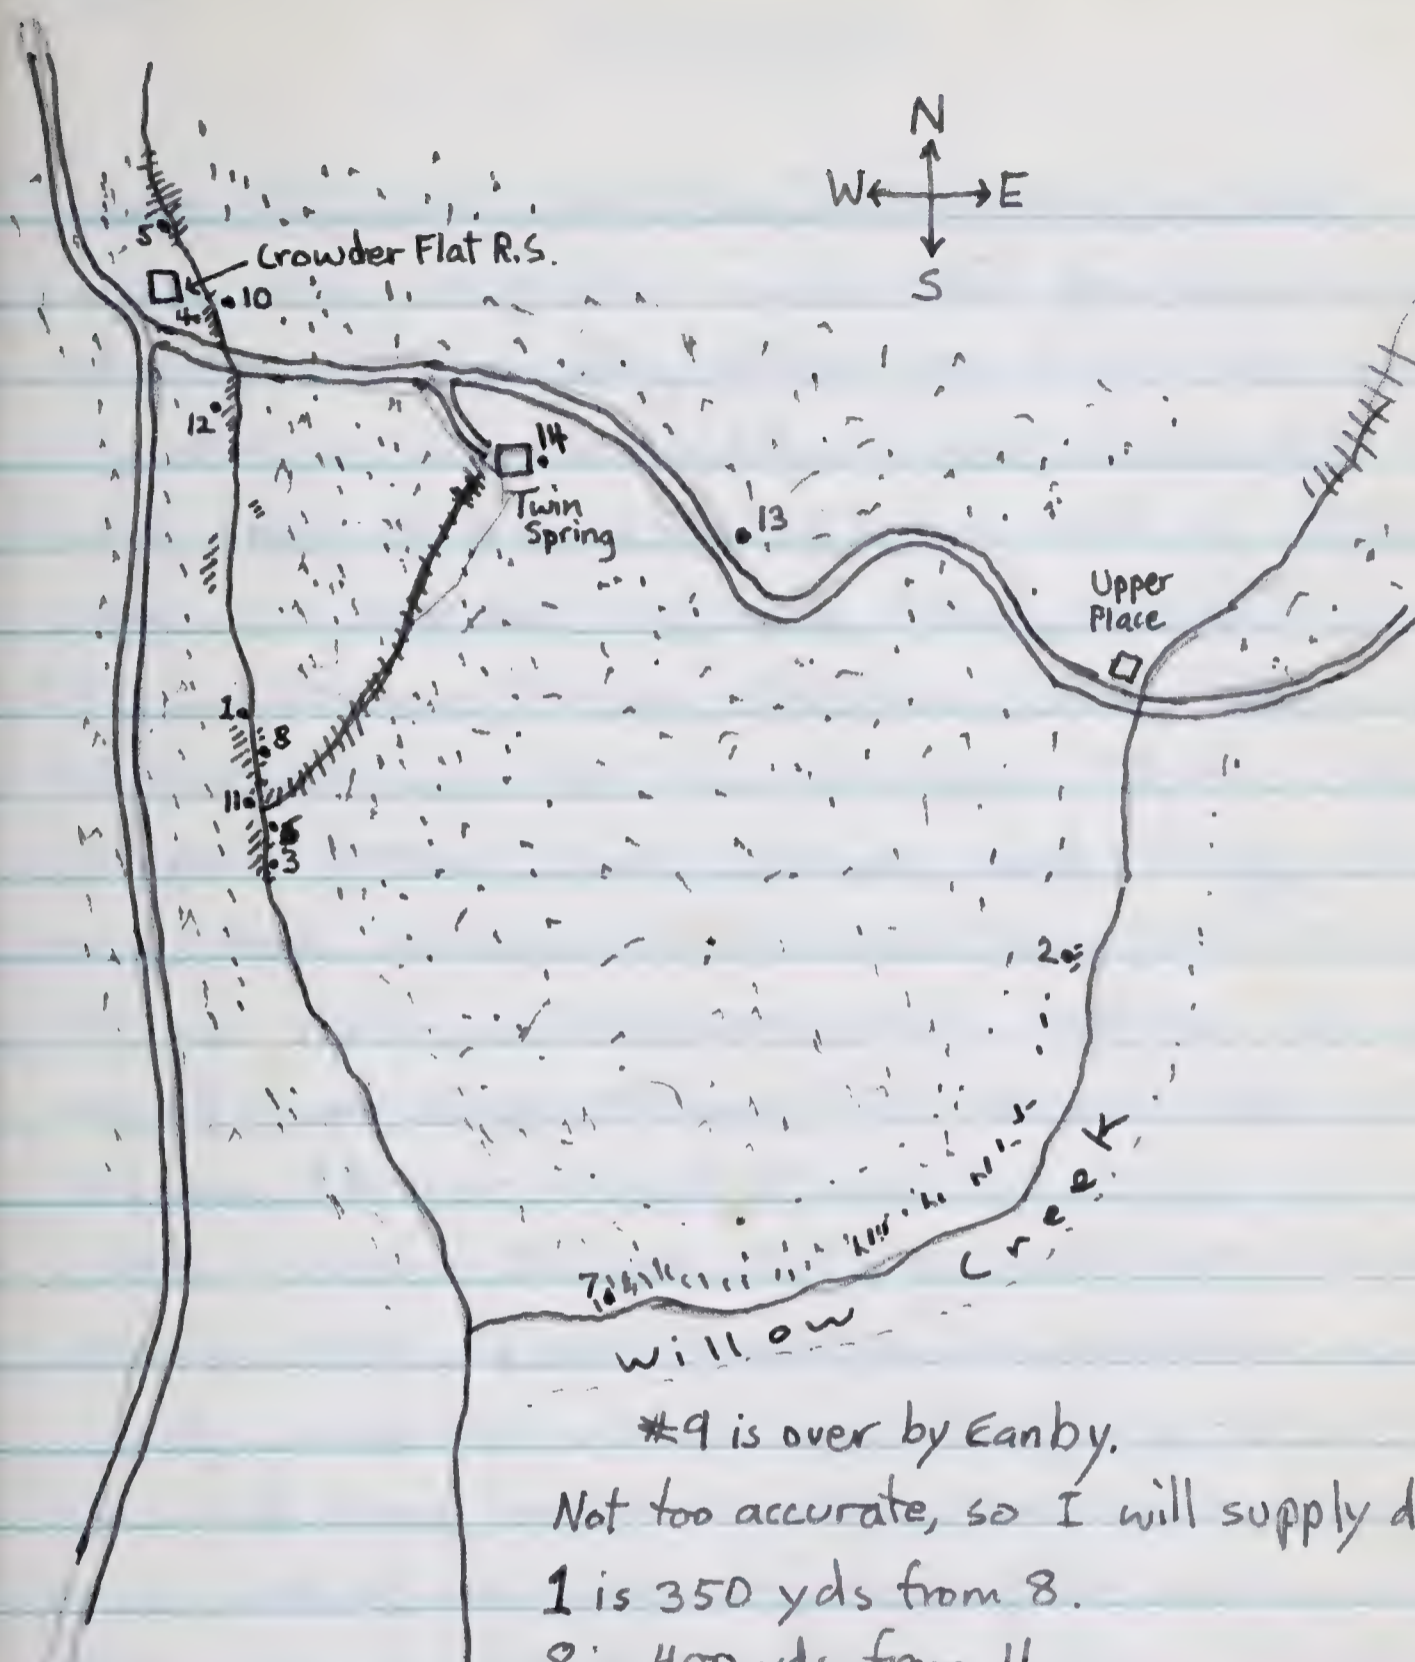 N
W E
S
5
Crowder Flat R.S.
10
4
12
14
Twin
Spring
13
Upper
Place
1
8
11
3
2
7
Willow Creek
#9 is over by Canby.
Not too accurate, so I will supply
1 is 350 yds from 8.
8 is 400 yds from 11